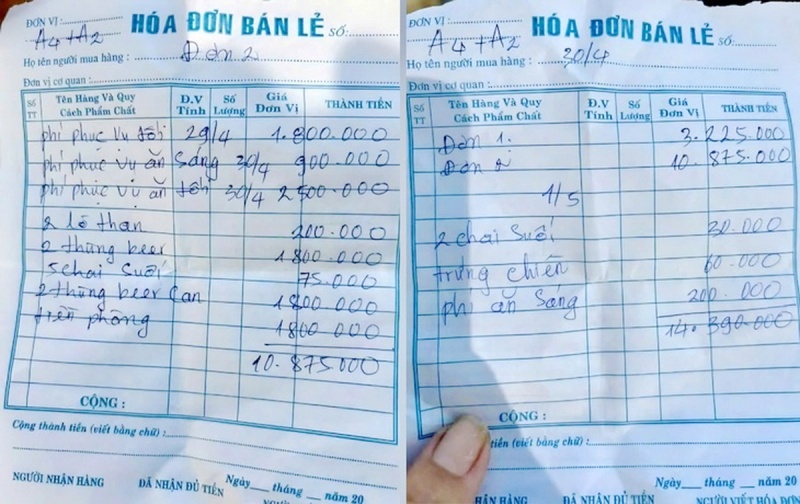 ĐƠN VỊ : A4 + A2
HÓA ĐƠN BÁN LẺ SỐ:
Họ tên người mua hàng : Đơn 2
Đơn vị cơ quan :
Số TT Tên Hàng Và Quy Cách Phẩm Chất Đ.V Tính Số Lượng Giá Đơn Vị THÀNH TIỀN
phí phục vụ tối 29/4 1.800.000
phí phục vụ ăn sáng 30/4 900.000
phí phục vụ ăn tối 30/4 2500.000
2 lò than 200.000
2 thùng beer 1800.000
5 chai suối 75.000
2 thùng beer Can 1800.000
tiền phòng 1800 000
10.875.000
CỘNG :
Cộng thành tiền (viết bằng chữ) :
Ngày___ tháng ___ năm 20
NGƯỜI NHẬN HÀNG ĐÃ NHẬN ĐỦ TIỀN
ĐƠN VỊ : A4 + A2
HÓA ĐƠN BÁN LẺ SỐ:
Họ tên người mua hàng : 30/4
Đơn vị cơ quan :
Số TT Tên Hàng Và Quy Cách Phẩm Chất Đ.V Tính Số Lượng Giá Đơn Vị THÀNH TIỀN
Đơn 1. 3.225.000
Đơn 2 10.875.000
1/5
2 chai suối 30.000
trứng chiên 60.000
phí ăn sáng 200.000
14.390.000
CỘNG :
tiền (viết bằng chữ) :
Ngày___ tháng ___ năm 20
HẬN HÀNG ĐÃ NHẬN ĐỦ TIỀN NGƯỜI VIẾT HÓA ĐƠN